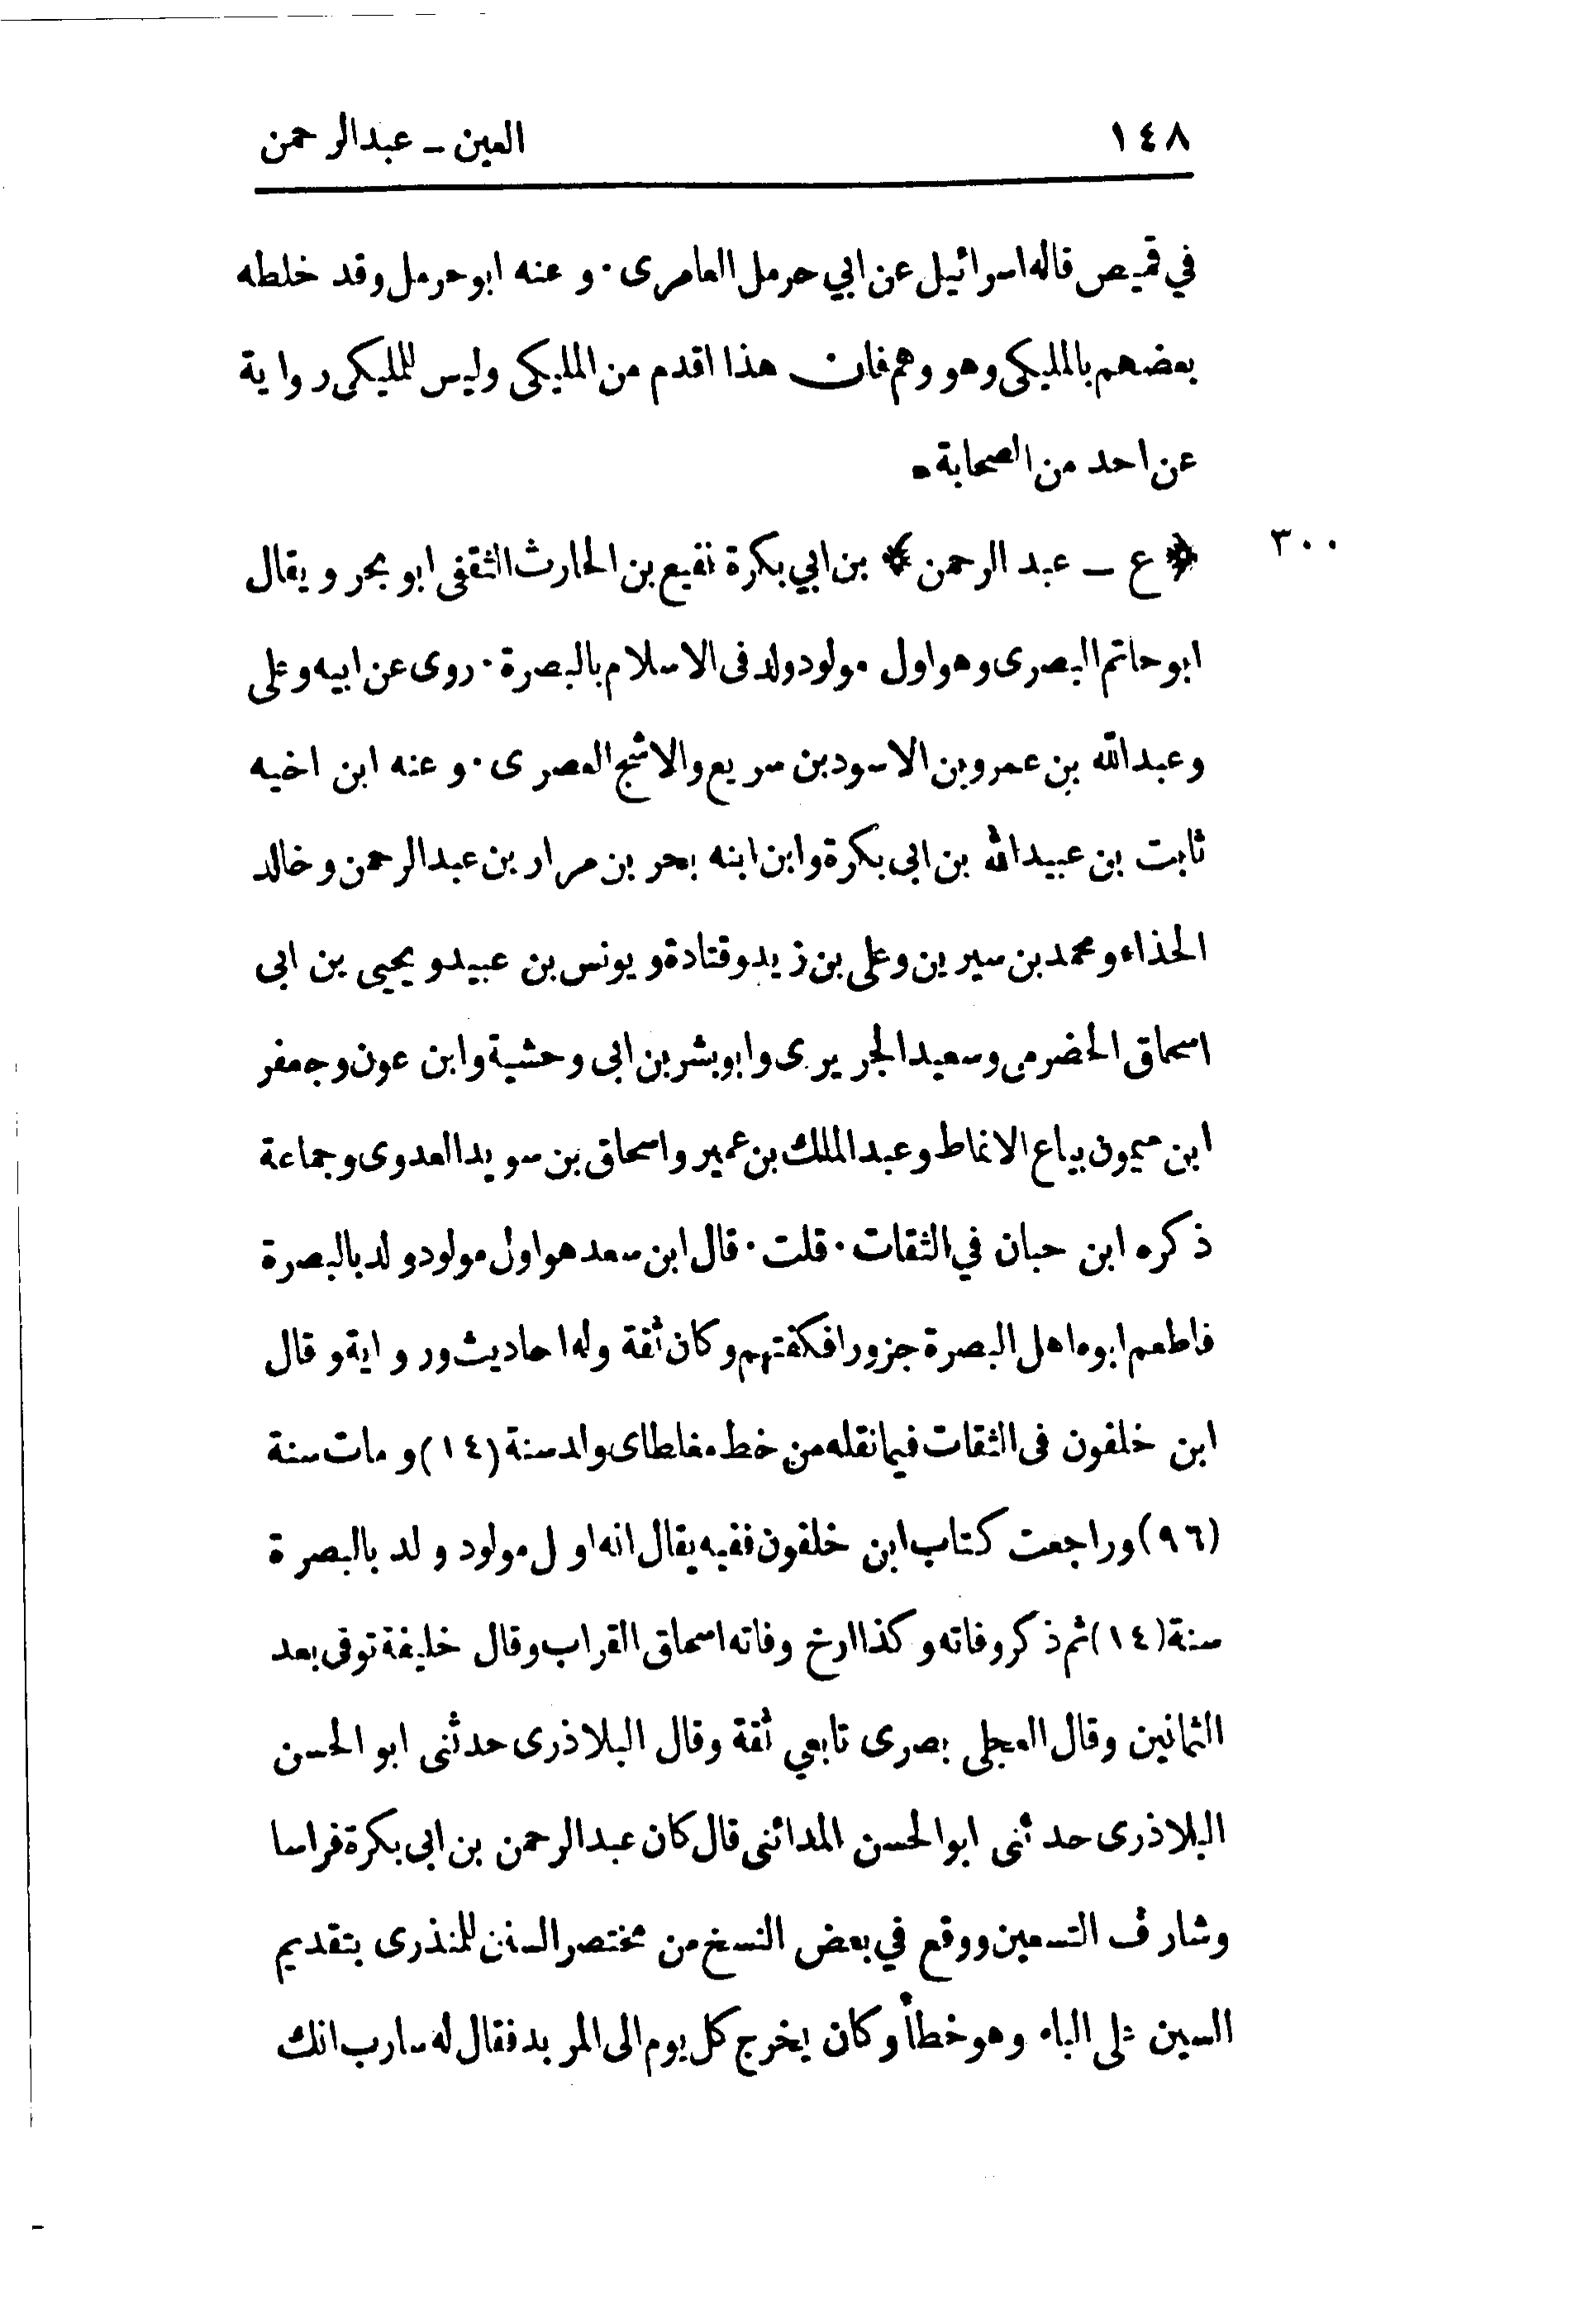 ١٤٨ العين ـ عبدالرحمن
في قميص قاله اسرائيل عن ابي حرمل العامرى ٠ و عنه ابو حرمل وقد خلطه
بعضهم بالمليكى وهو وهم فان هذا اقدم من المليكى وليس للمليكى رواية
عن احد من الصحابة ٠
٣٠٠ ﴿ ع ـ عبد الرحمن ﴾ بن ابي بكرة نفيع بن الحارث الثقفى ابو بحر ويقال
ابو حاتم البصرى وهو اول مولود ولد فى الاسلام بالبصرة ٠ روى عن ابيه وعلى
وعبدالله بن عمرو بن الاسود بن سريع والاشج العصرى ٠ وعنه ابن اخيه
ثابت بن عبيدالله بن ابى بكرة وابن ابنه بحر بن مرار بن عبدالرحمن وخالد
الحذاء ومحمد بن سيرين وعلى بن زيد وقتادة ويونس بن عبيد ويحيى بن ابى
اسحاق الحضرمى وسعيد الجريرى وابو بشر بن ابى وحشية وابن عون وجعفر
ابن ميمون بياع الانماط وعبد الملك بن عمير واسحاق بن سويد العدوى وجماعة
ذكره ابن حبان في الثقات ٠ قلت ٠ قال ابن سعد هو اول مولود ولد بالبصرة
فاطعم ابوه اهل البصرة جزورا فكفتهم وكان ثقة وله احاديث ورواية وقال
ابن خلفون فى الثقات فيما نقله من خط مغلطاى ولد سنة (١٤) و مات سنة
(٩٦) وراجعت كتاب ابن خلفون ففيه يقال انه اول مولود ولد بالبصرة
سنة (١٤) ثم ذكر وفاته وكذا ارخ وفاته اسحاق القراب وقال خليفة توفى بعد
الثمانين وقال العجلى بصرى تابعي ثقة وقال البلاذرى حدثنى ابو الحسن
البلاذرى حدثنى ابو الحسن المدائنى قال كان عبدالرحمن بن ابى بكرة فراسا
وشارف التسعين ووقع في بعض النسخ من مختصر السنن للمنذرى بتقديم
السين على الباء وهو خطأ وكان يخرج كل يوم الى المربد فقال له سارب انك